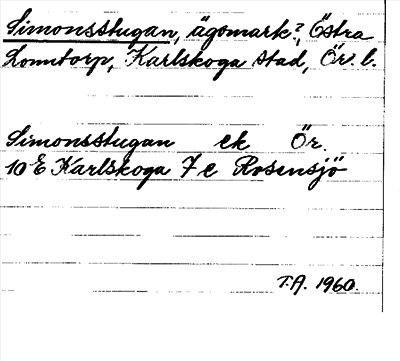 Simonsstugan, ägomark?, Östra
Lonntorp, Karlskoga stad, Ör. l.
Simonsstugan ek Ör.
10 E Karlskoga 7 e Rosensjö
T.A. 1960.